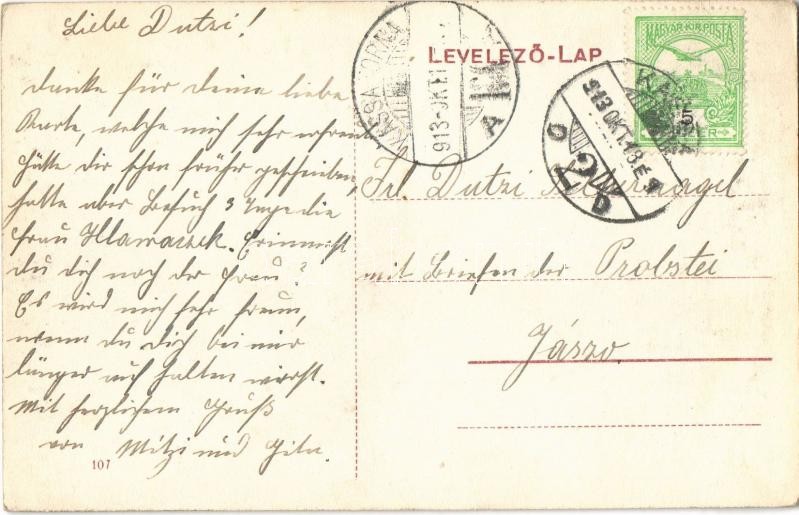 Liebe Dutzi!
Danke für deine liebe
Karte, welche mich sehr erfreut
hätte dir schon früher geschrieben,
hatte aber Besuch 3 Tage die
Frau Hlawaczek. Erinnerst
du dich noch der Frau?
Es wird mich sehr freun,
wenn du dich bei mir
länger auf halten wirst.
Mit herzlichem Gruß
von Mitzi und
107
LEVELEZŐ-LAP
MAGYAR KIR. POSTA
5
KASSA
TORNA
913 OKT
A
913 OKT 13 E
D
Frl. Dutzi
mit Briefen der Probstei
Jászo.